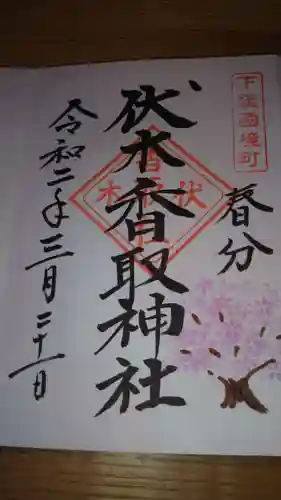 下総国境町
春分
伏木香取神社
令和二年三月二十一日